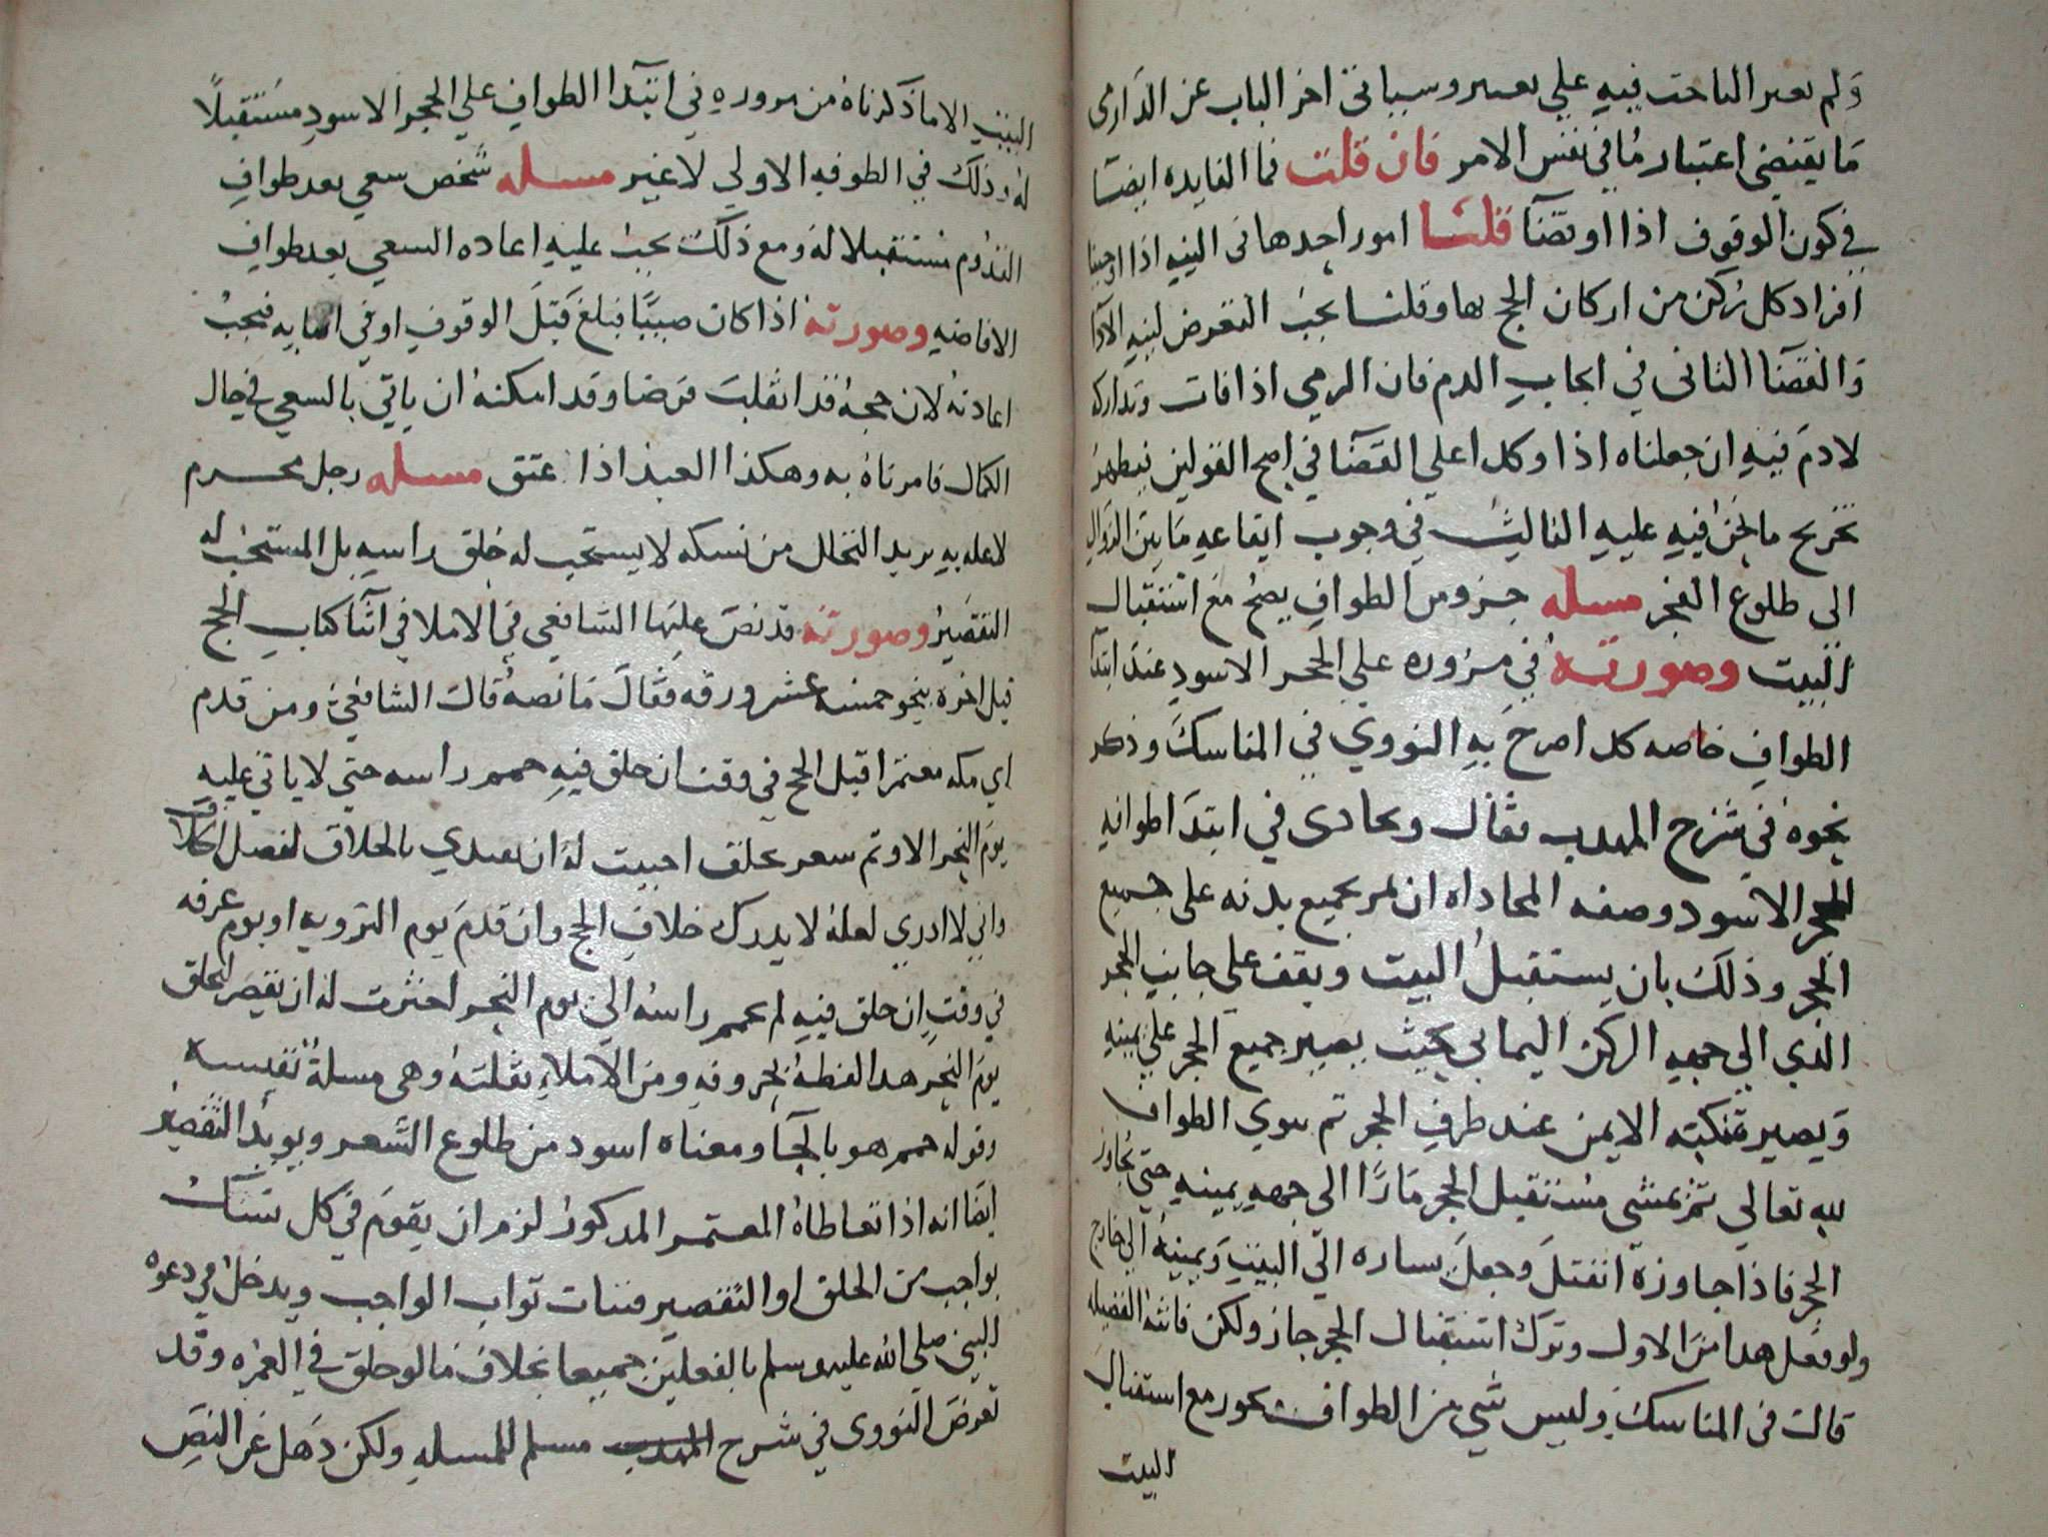 ولم يعبر الباحث فيه على بعير وسياتى اخر الباب عن الدارمى
ما يقتضى اعتبار ما فى نفس الامر فان قلت فما الفايده ايضا
فى كون الوقوف اذا او قضآ قلنا امور احدها فى النيه اذا اوجبنا
افراد كل ركن من اركان الحج بها وقلنا يجب التعرض لنيه الادآ
والقضآ الثانى فى ايجاب الدم فان الرمى اذا فات وتداركه
لا دم فيه ان جعلناه اذا وكذا على القضآ فى اصح القولين فيظهر
تخريج ما نحن فيه عليه الثالث فى وجوب ايقاعه ما بين الزوال
الى طلوع الفجر مسله جزو من الطواف يصح مع استقبال
البيت وصورته فى مروره على الحجر الاسود عند ابتدآ
الطواف خاصه كذا صرح به النووي فى المناسك وذكر
نحوه فى شرح المهدب فقال ويحادى فى ابتدآ طوافه
الحجر الاسود وصفه المحاداه ان يمر بجميع بدنه على جميع
الحجر وذلك بان يستقبل البيت ويقف على جانب الحجر
الذي الى جهه الركن اليماني بحيث يصير جميع الحجر على يمينه
ويصير منكبه الايمن عند طرف الحجر ثم ينوي الطواف
لله تعالى ثم يمشى مستقبل الحجر مارًا الى جهه يمينه حتى يجاوز
الحجر فاذا جاوزه انفتل وجعل يساره الى البيت ويمينه الى خارج
ولو فعل هدا من الاول وترك استقبال الحجر جاز ولكن فاتته الفضيله
قال فى المناسك وليس شي من الطواف يجوز مع استقبال
البيت
البيت الا ما ذكرناه من مروره فى ابتدا الطواف على الحجر الاسود مستقبلاً
له وذلك فى الطوفه الاولى لا غير مسله شخص سعي بعد طواف
القدوم مستقبلا له ومع ذلك يجب عليه اعاده السعي بعد طواف
الافاضه وصورته اذا كان صبيًا فبلغ قبل الوقوف او فى اثنايه فيجب
اعادته لان حجه قد انقلب فرضا وقد امكنه ان ياتى بالسعي فى حال
الكمال فامرناه به وهكذا العبد اذا عتق مسله رجل محرم
لا عله به يريد التحلل من نسكه لا يستحب له حلق راسه بل المستحب له
التقصير وصورته قد نص عليها الشافعى فى الاملا فى اثنآ كتاب الحج
قبل اخره بنحو خمسه عشر ورقه فقال ما نصه قال الشافعى ومن قدم
اي مكه معتمرا قبل الحج فى وقت ان حلق فيه حمم راسه حتى لا ياتى عليه
يوم النحر الا وثم شعر يحلق احببت له ان يبتدي بالحلاق لفضل الحلاق
وانى لا ادري لعله لا يدرك حلاق الحج وان قدم يوم الترويه او يوم عرفه
فى وقت ان حلق فيه لم يحمم راسه الى يوم النحر اخترت له ان يقصر ليحلق
يوم النحر هدا لفظه بحروفه ومن الاملاء نقلته وهى مسلة نفيسه
وقوله حمم هو بالحآ ومعناه اسود من طلوع الشعر ويويد التقصير
ايضا انه اذا تعاطاه المعتمر المدكور لزم ان يقوم فى كل نسك
بواجب من الحلق او التقصير فيثاب ثواب الواجب ويدخل فى دعوه
النبى صلى الله عليه وسلم بالفعلين جميعا بخلاف ما لو حلق فى العمره وقد
تعرض النووى فى شرح مسلم للمسله ولكن ذهل عن النص